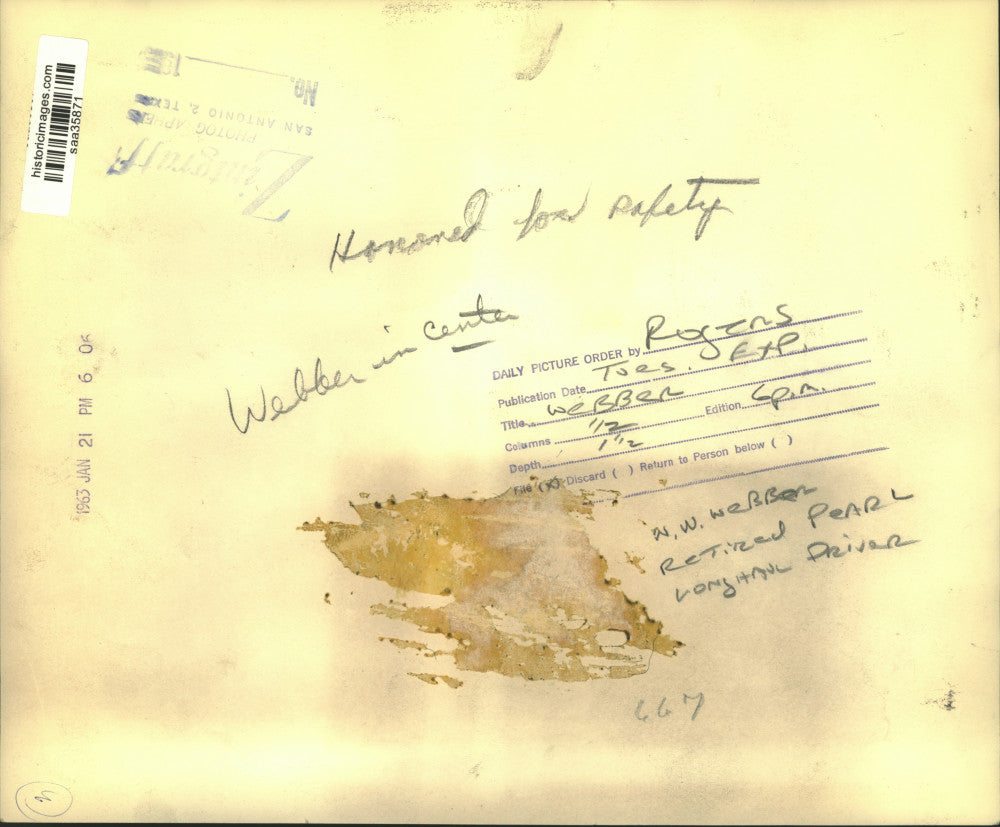 historicimages.com
saa35871
No.
SAN ANTONIO 2, TEXAS
PHOTOGRAPHERS
Zintgraff
Honored for safety
Webber in center
1963 JAN 21 PM 6 06
DAILY PICTURE ORDER by Rogers
Publication Date Tues. Exp.
Title WEBBER
Edition 6 p.m.
Columns 1/2
Depth 1 1/2
File (X) Discard ( ) Return to Person below ( )
W. WEBBER
RETIRED PEARL
LONGHAUL DRIVER
667